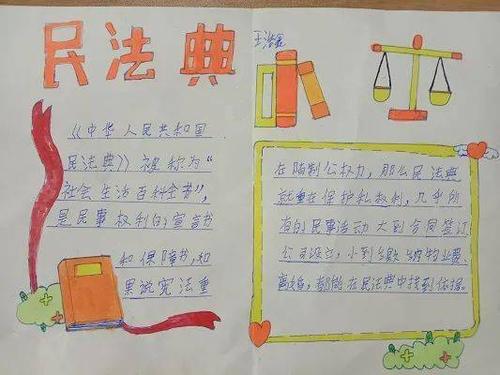 民法典
王浩
《中华人民共和国
民法典》被称为“
社会生活百科全书”,
是民事权利的宣言书
和保障书,如
果说宪法重
在限制公权力,那么民法典
就重在保护私权利,几乎所
有的民事活动大到合同签订
公司设立,小到缴纳物业费、
离婚,都能在民法典中找到依据。